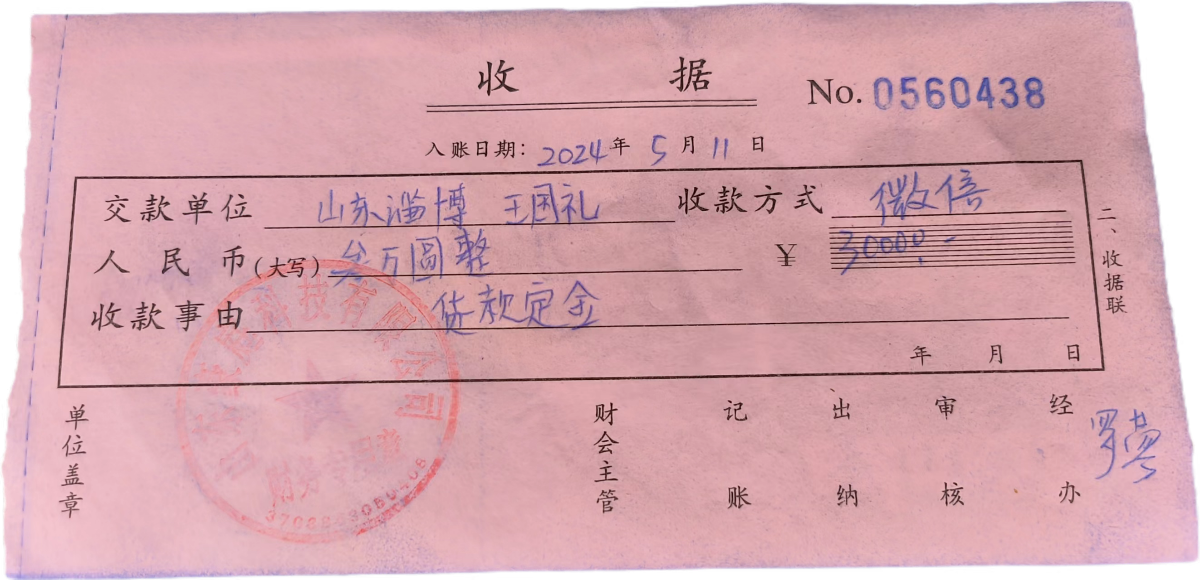 收 据
No. 0560438
入账日期: 2024年 5月 11日
交款单位 山东淄博 王国礼 收款方式 微信
人民币(大写) 叁万圆整 ¥ 30000.-
收款事由 货款定金
年 月 日
二、收据联
单位盖章 财会主管 记账 出纳 审核 经办
科技有限公司
财务专用章